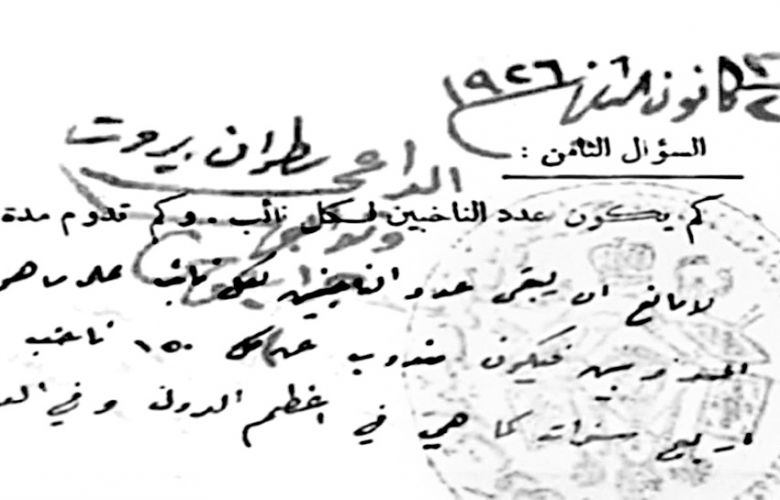 كانون الثاني ١٩٢٦
مطران بيروت
الداعي
السؤال الثامن :
كم يكون عدد الناخبين لكل نائب . وكم تدوم مدة
لا مانع ان يبقى عدد الناخبين لكل نائب على ما هو
المندوبين فيكون مندوب عن كل ١٥٠ ناخب
اربع سنوات كما هي في اعظم الدول وفي